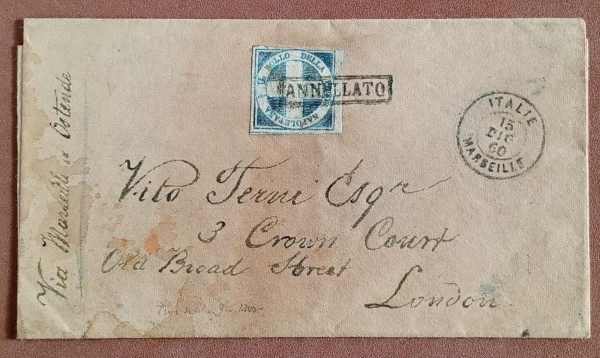 BOLLO DELLA
NAPOLETANA
ANNULLATO
ITALIE
15
DIC
60
MARSEILLE
Via Marseille Ostende
Vito Terni Esqr
3 Crown Court
Old Broad Street
London